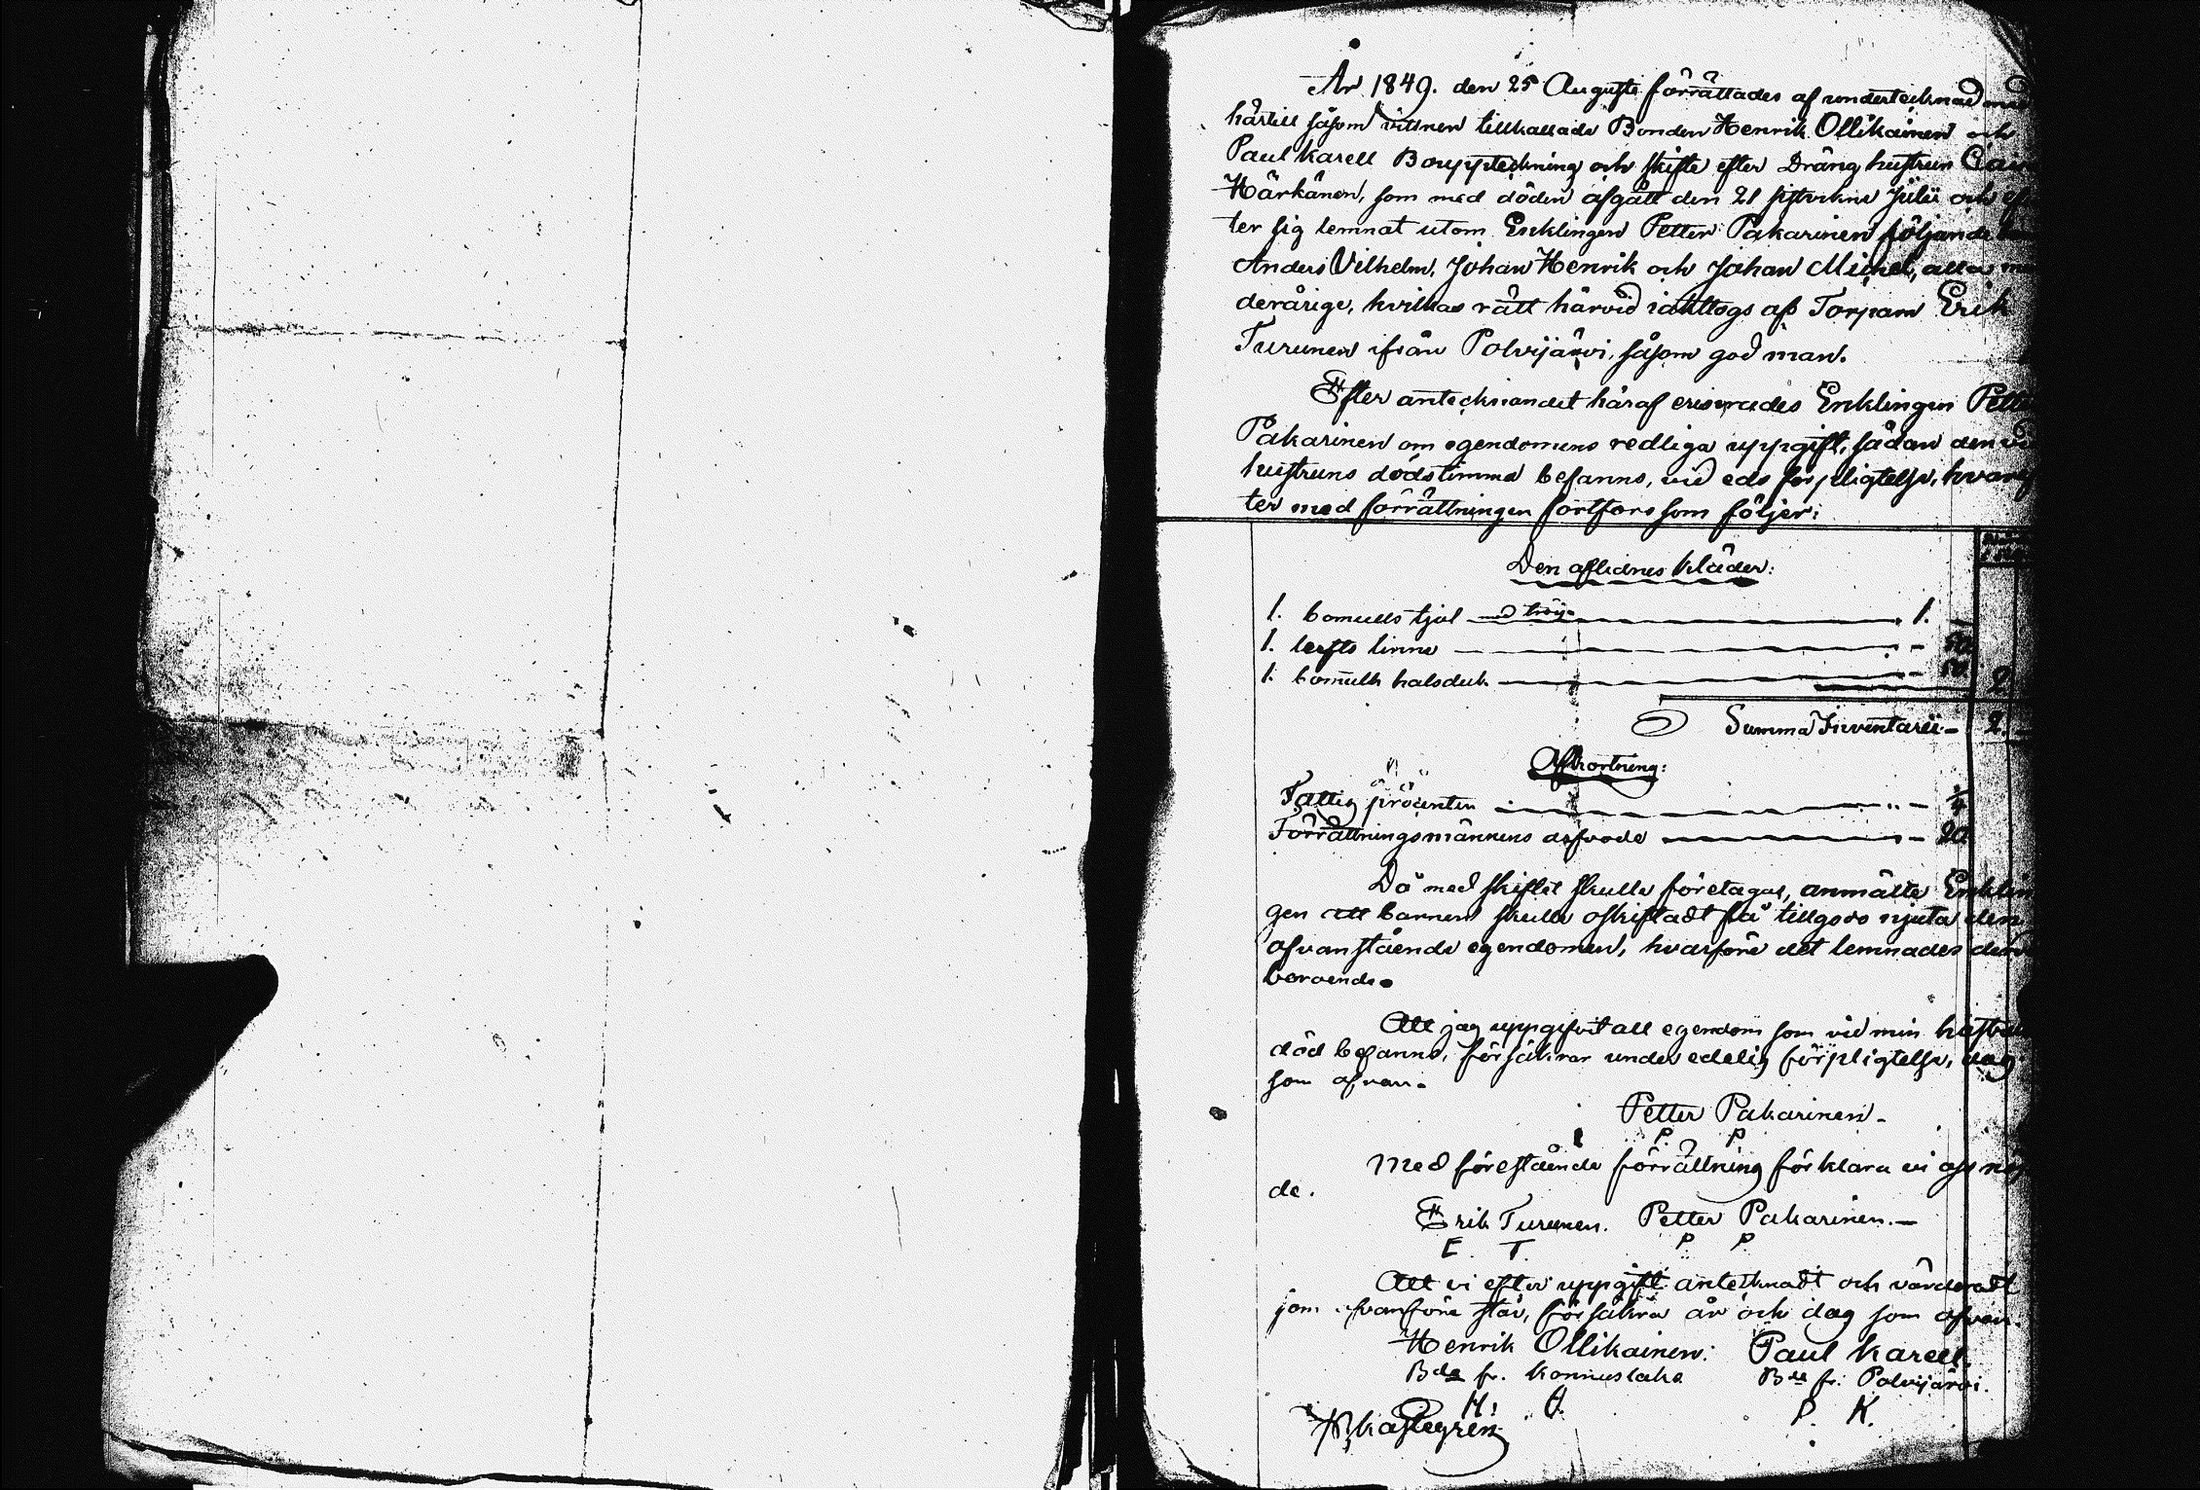 År 1849. den 25 Augusti förrättades af undertecknad med
härtill såsom vittnen tillkallade Bonden Henrik Ollikainen och
Paul Karell Bouppteckning och skifte efter Dräng hustrun
Härkänen, som med döden afgått den 21 sistvikne Julii och ef
ter sig lemnat utom Enklingen Petter Pakarinen följande
Anders Vilhelm, Johan Henrik och Johan Michel, alla
derårige, hvilkas rätt härvid iakttogs af Torparn Erik
Turunen ifrån Polvijärvi, såsom god man.
Efter antecknandet häraf erinrades Enklingen Petter
Pakarinen om egendomens redliga uppgift, sådan den vid
hustruns dödstimma befanns, vid eds förpligtelse, hvaref
ter med förrättningen fortfors som följer:
Den aflidnes kläder:
1. bomulls kjol med tröja 1. —
1. lerfts linne — 50
1. bomulls halsduk — 50. 2.
Summa Inventarii — 2. —
Afkortning:
Fattig procenten — ¼
Förrättningsmännens arfvode — 20
Då med skiftet skulle företagas, anmälte Enklin
gen att barnen skulle oskiftadt få tillgodo njuta den
ofvanstående egendomen, hvarföre det lemnades der
beroende.
Att jag uppgifvit all egendom som vid min hustrus
död befanns, försäkrar under edelig förpligtelse, dag
som ofvan.
Petter Pakarinen.
P P
Med förestående förrättning förklara vi oss nöj
de.
Erik Turunen. Petter Pakarinen. —
E. T. P P
Att vi efter uppgift antecknadt och värderadt
som ofvanföre står, försäkra år och dag som ofvan.
Henrik Ollikainen. Paul Karell.
Bde fr. Konnuslaks Bde fr. Polvijärvi.
H. O. P. K.